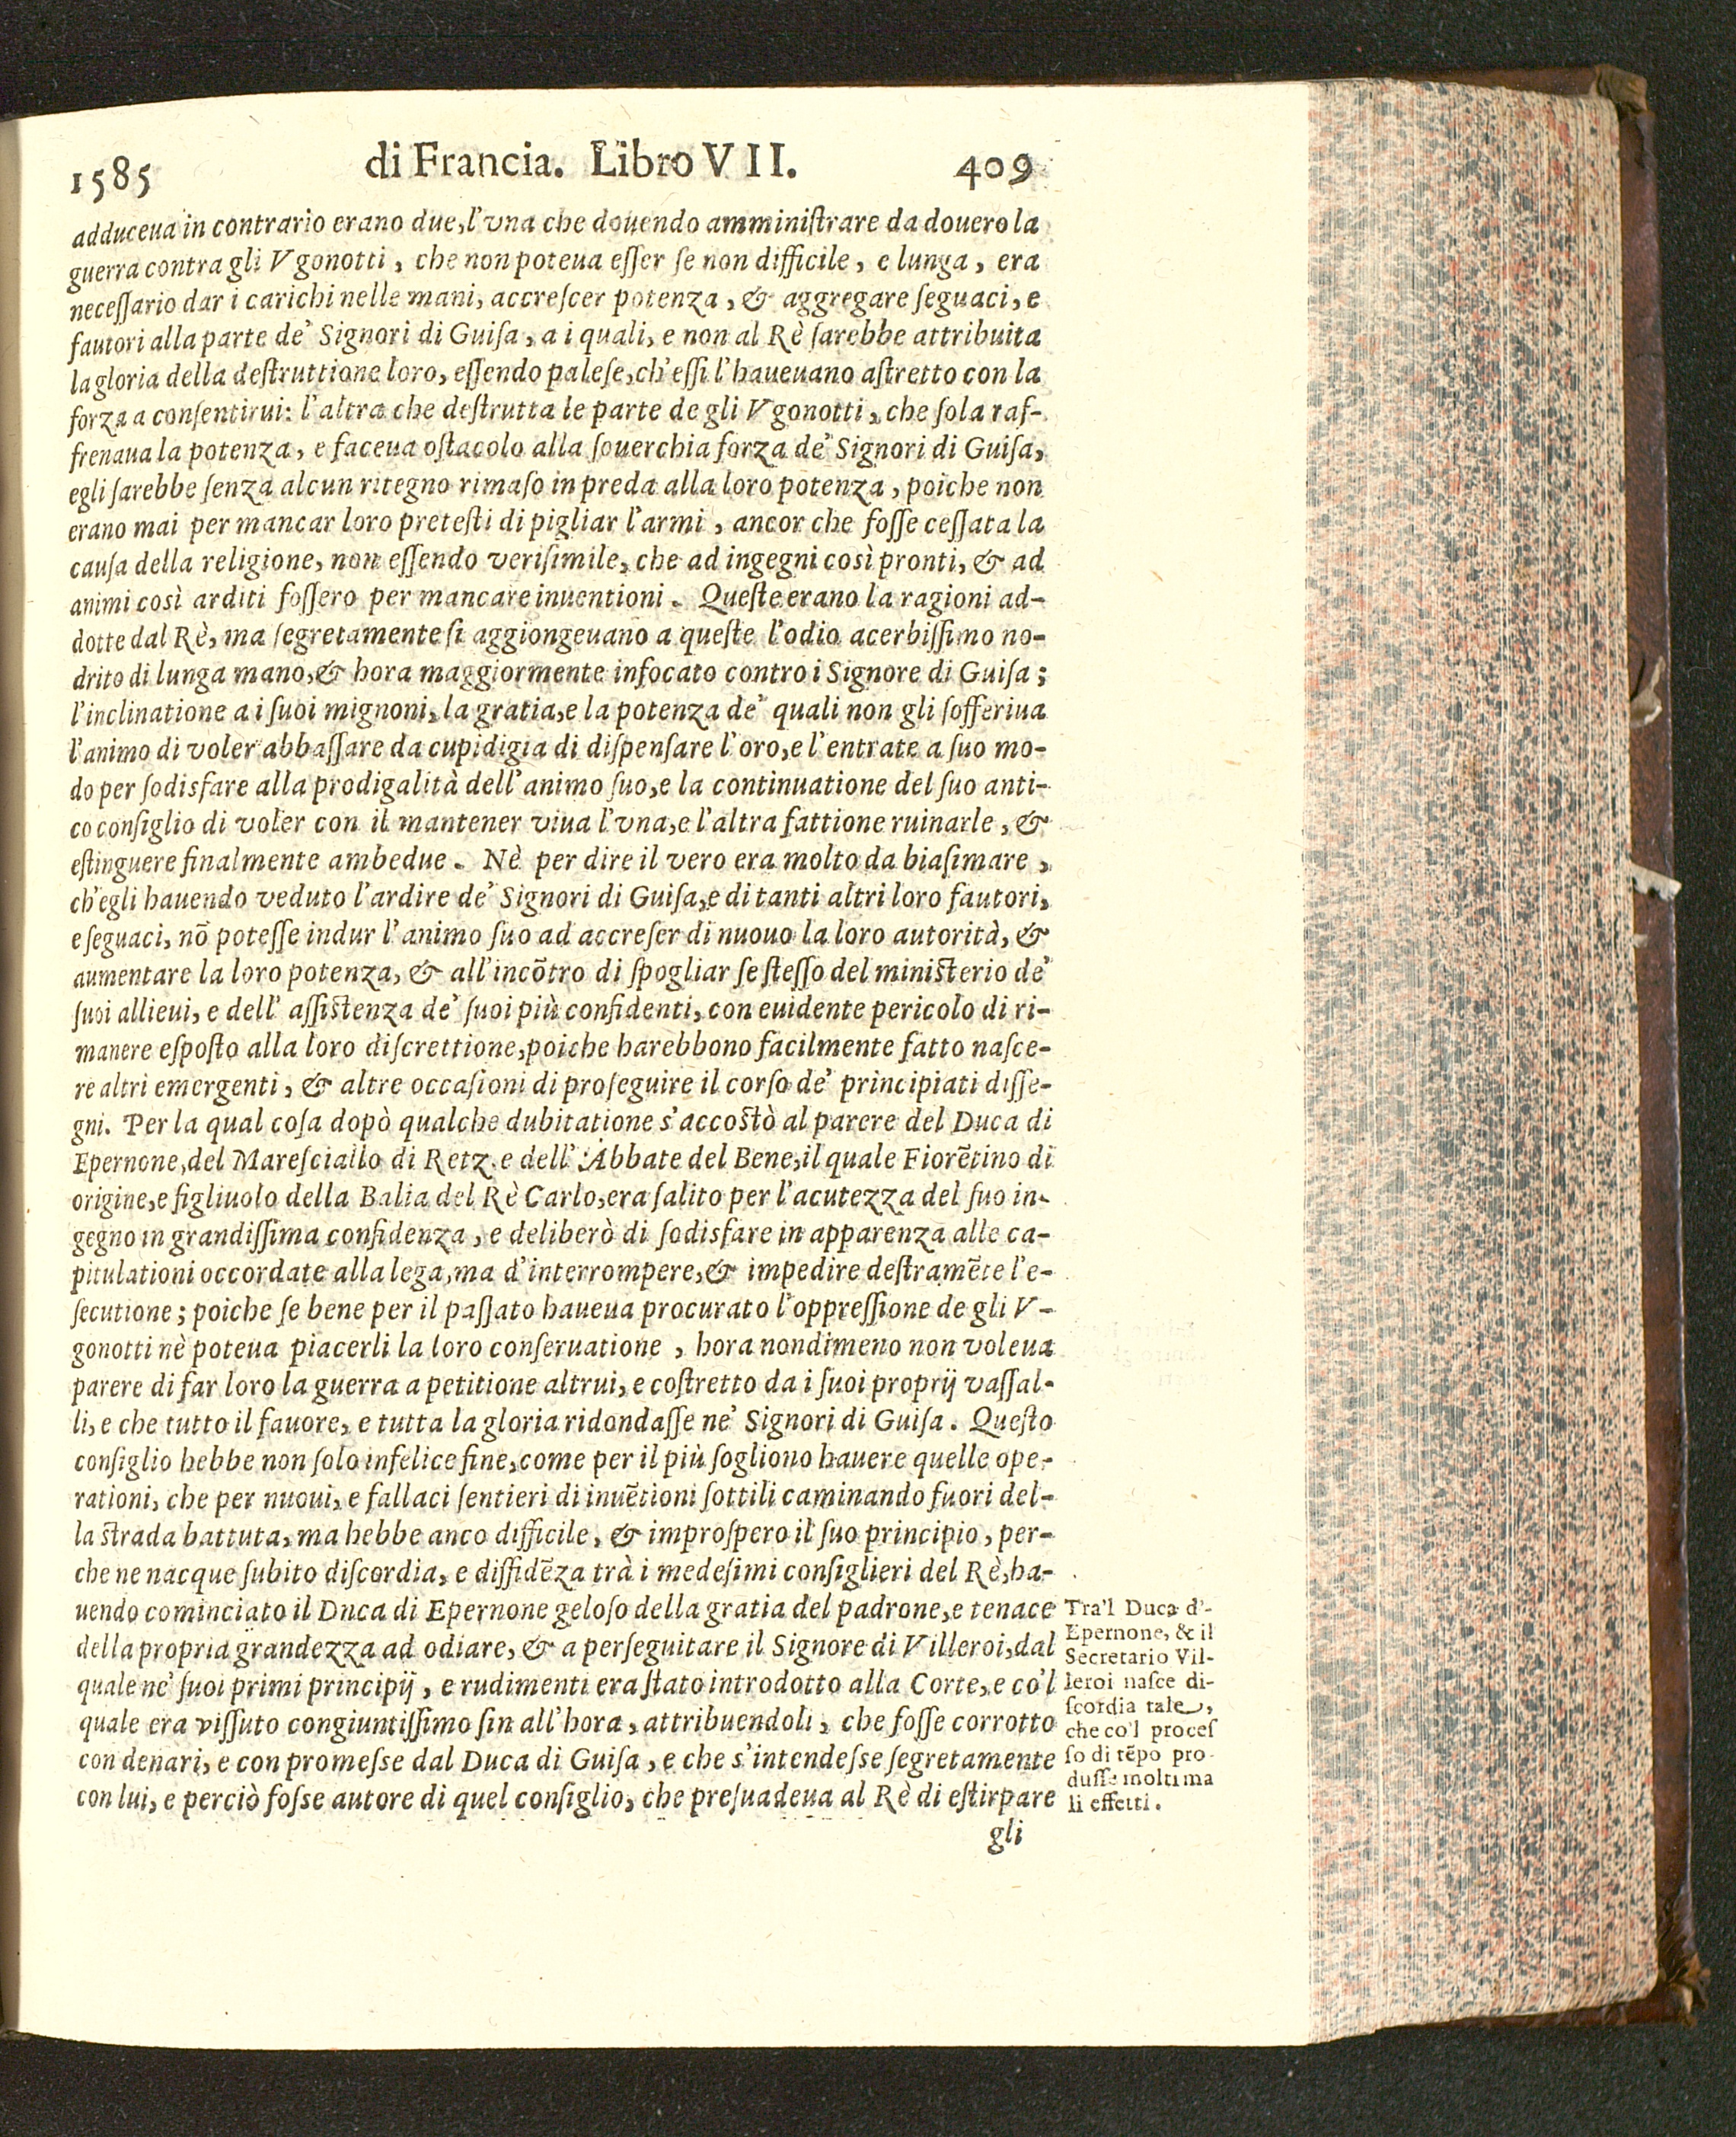 1585 di Francia. Libro VII. 409
adduceua in contrario erano due, l'vna che douendo amminiſtrare da douero la
guerra contra gli Vgonotti, che non poteua eſſer ſe non difficile, e lunga, era
neceſſario dar i carichi nelle mani, accreſcer potenza, & aggregare ſeguaci, e
fautori alla parte de' Signori di Guiſa, a i quali, e non al Rè ſarebbe attribuita
la gloria della deſtruttione loro, eſſendo paleſe, ch'eſſi l'haueuano aſtretto con la
forza a conſentirui: l'altra che deſtrutta le parte de gli Vgonotti, che ſola raf-
frenaua la potenza, e faceua oſtacolo alla ſouerchia forza de' Signori di Guiſa,
egli ſarebbe ſenza alcun ritegno rimaſo in preda alla loro potenza, poiche non
erano mai per mancar loro preteſti di pigliar l'armi, ancor che foſſe ceſſata la
cauſa della religione, non eſſendo veriſimile, che ad ingegni così pronti, & ad
animi così arditi foſſero per mancare inuentioni. Queſte erano la ragioni ad-
dotte dal Rè, ma ſegretamente ſi aggiongeuano a queſte l'odio acerbiſſimo no-
drito di lunga mano, & hora maggiormente infocato contro i Signore di Guiſa;
l'inclinatione a i ſuoi mignoni, la gratia, e la potenza de' quali non gli ſofferiua
l'animo di voler abbaſſare da cupidigia di diſpenſare l'oro, e l'entrate a ſuo mo-
do per ſodisfare alla prodigalità dell'animo ſuo, e la continuatione del ſuo anti-
co conſiglio di voler con il mantener viua l'vna, e l'altra fattione ruinarle, &
eſtinguere finalmente ambedue. Nè per dire il vero era molto da biaſimare,
ch'egli hauendo veduto l'ardire de' Signori di Guiſa, e di tanti altri loro fautori,
e ſeguaci, nõ poteſſe indur l'animo ſuo ad accreſer di nuouo la loro autorità, &
aumentare la loro potenza, & all'incõtro di ſpogliar ſe ſteſſo del miniſterio de'
ſuoi allieui, e dell' aſſiſtenza de' ſuoi più confidenti, con euidente pericolo di ri-
manere eſpoſto alla loro diſcrettione, poiche harebbono facilmente fatto naſce-
re altri emergenti, & altre occaſioni di proſeguire il corſo de' principiati diſſe-
gni. Per la qual coſa dopò qualche dubitatione s'accoſtò al parere del Duca di
Epernone, del Mareſciallo di Retz. e dell' Abbate del Bene, il quale Fiorẽtino di
origine, e figliuolo della Balia del Rè Carlo, era ſalito per l'acutezza del ſuo in-
gegno in grandiſſima confidenza, e deliberò di ſodisfare in apparenza alle ca-
pitulationi occordate alla lega, ma d'interrompere, & impedire deſtramẽte l'e-
ſecutione; poiche ſe bene per il paſſato haueua procurato l'oppreſſione de gli V-
gonotti nè poteua piacerli la loro conſeruatione, hora nondimeno non voleua
parere di far loro la guerra a petitione altrui, e coſtretto da i ſuoi proprij vaſſal-
li, e che tutto il fauore, e tutta la gloria ridondaſſe ne' Signori di Guiſa. Queſto
conſiglio hebbe non ſolo infelice fine, come per il più ſogliono hauere quelle ope-
rationi, che per nuoui, e fallaci ſentieri di inuẽtioni ſottili caminando fuori del-
la ſtrada battuta, ma hebbe anco difficile, & improſpero il ſuo principio, per-
che ne nacque ſubito diſcordia, e diffidẽza trà i medeſimi conſiglieri del Rè, ha-
uendo cominciato il Duca di Epernone geloſo della gratia del padrone, e tenace
della propria grandezza ad odiare, & a perſeguitare il Signore di Villeroi, dal
quale ne' ſuoi primi principij, e rudimenti era ſtato introdotto alla Corte, e co'l
quale era viſſuto congiuntiſſimo ſin all'hora, attribuendoli, che foſſe corrotto
con denari, e con promeſse dal Duca di Guiſa, e che s'intendeſse ſegretamente
con lui, e perciò foſse autore di quel conſiglio, che preſuadeua al Rè di eſtirpare
gli
Tra'l Duca d'-
Epernone, & il
Secretario Vil-
leroi naſce di-
ſcordia tale,
che co'l proceſ
ſo di tẽpo pro-
duſſe molti ma
li effetti.